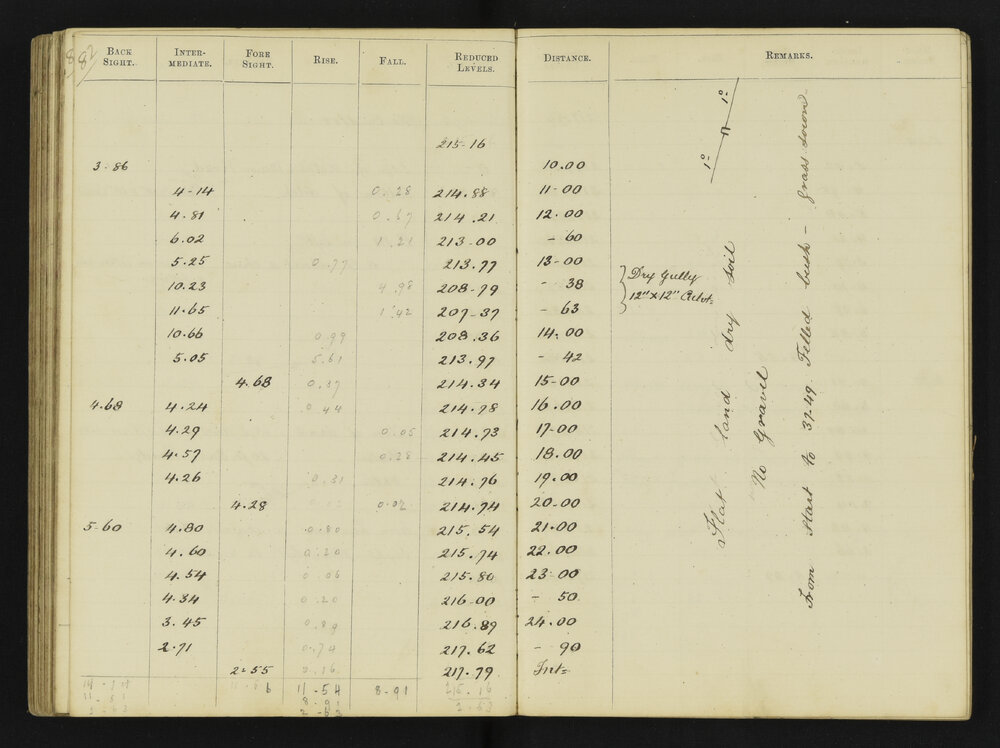 882
BACK SIGHT. INTER-MEDIATE. FORE SIGHT. RISE. FALL. REDUCED LEVELS. DISTANCE. REMARKS.
215-16
3-86 10.00
4-14 0.28 214.88 11-00
4.81 0.67 214.21 12.00
6.02 1.21 213.00 - 60
5.25 0.77 213.77 13-00
10.23 4.98 208-79 - 38
11.65 1.42 207-37 - 63
10.66 0.99 208.36 14.00
5.05 5.61 213.97 - 42
4.68 0.37 214.34 15-00
4.68 4.24 0.44 214.78 16.00
4.29 0.05 214.73 17-00
4.57 0.28 214.45 18.00
4.26 0.31 214.76 19.00
4.28 0.02 214.74 20.00
5-60 4.80 0.80 215.54 21.00
4.60 0.20 215.74 22.00
4.54 0.06 215.80 23-00
4.34 0.20 216-00 - 50
3.45 0.89 216.89 24.00
2.71 0.74 217.62 - 90
2.55 0.16 217.79 Int=
14-14 11-54 8-91 215.16
11.51 8.91 2.63
2.63 2-63
Dry Gully
12"x12" Culvt=
1° n 1°
Flat land dry soil
No Gravel
From Start to 37-49 Felled bush - grass sown -